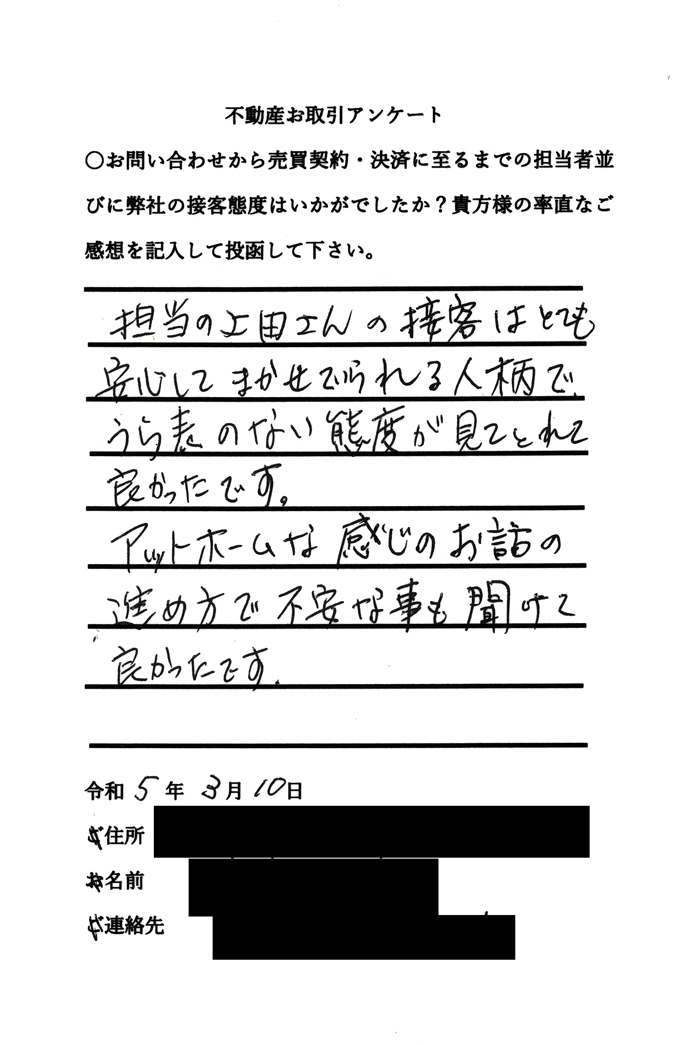 不動産お取引アンケート
〇お問い合わせから売買契約・決済に至るまでの担当者並
びに弊社の接客態度はいかがでしたか？貴方様の率直なご
感想を記入して投函して下さい。
担当の上田さんの接客はとても
安心してまかせてられる人柄で、
うら表のない態度が見てとれて
良かったです。
アットホームな感じのお話の
進め方で不安な事も聞けて
良かったです.
令和5年3月10日
ご住所
お名前
ご連絡先